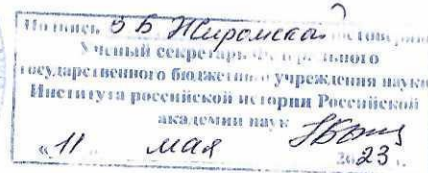 Подпись В Б Жиромской
Ученый секретарь
государственного бюджетного учреждения науки
Института российской истории Российской
академии наук
« 11 » мая 2023 г.